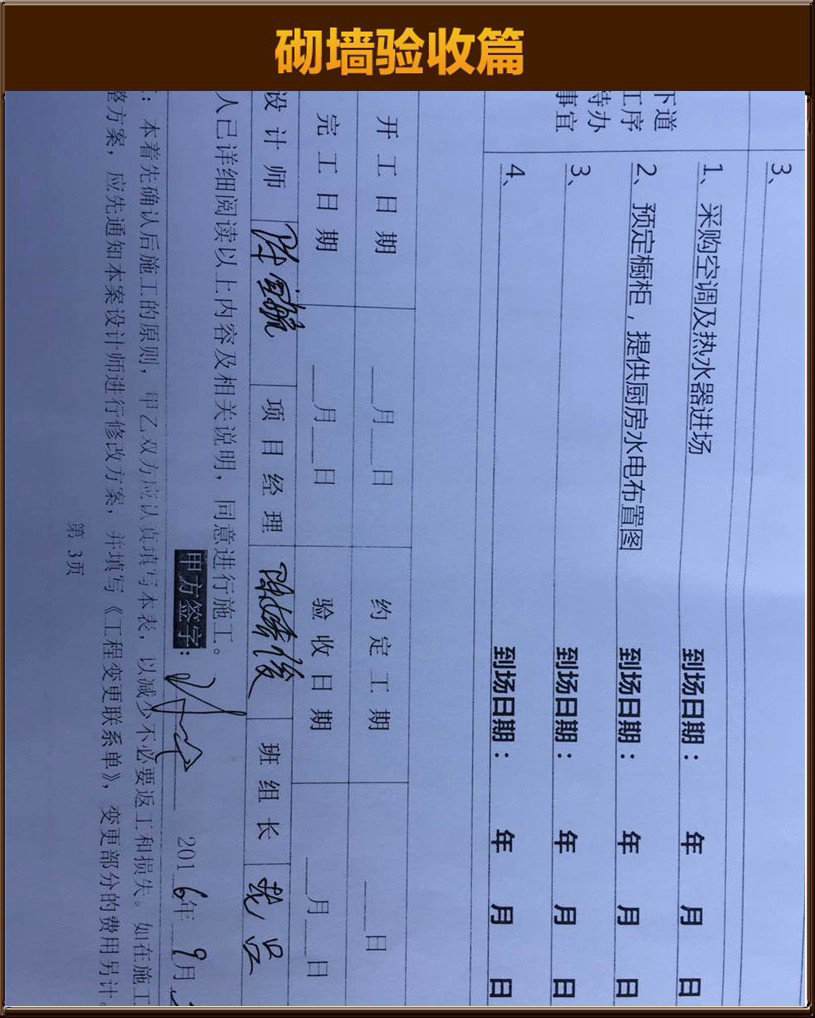 砌墙验收篇
3、
下道
工序
待办
事宜
1、采购空调及热水器进场 到场日期： 年 月 日
2、预定橱柜，提供厨房水电布置图 到场日期： 年 月 日
3、 到场日期： 年 月 日
4、 到场日期： 年 月 日
开工日期 __月__日 约定工期 __日
完工日期 __月__日 验收日期 __月__日
设计师 项目经理 班组长
人已详细阅读以上内容及相关说明，同意进行施工。
甲方签字： 2016年 9月
：本着先确认后施工的原则，甲乙双方应认真填写本表，以减少不必要返工和损失。如在施工
整方案，应先通知本案设计师进行修改方案，并填写《工程变更联系单》，变更部分的费用另计。
第 3页